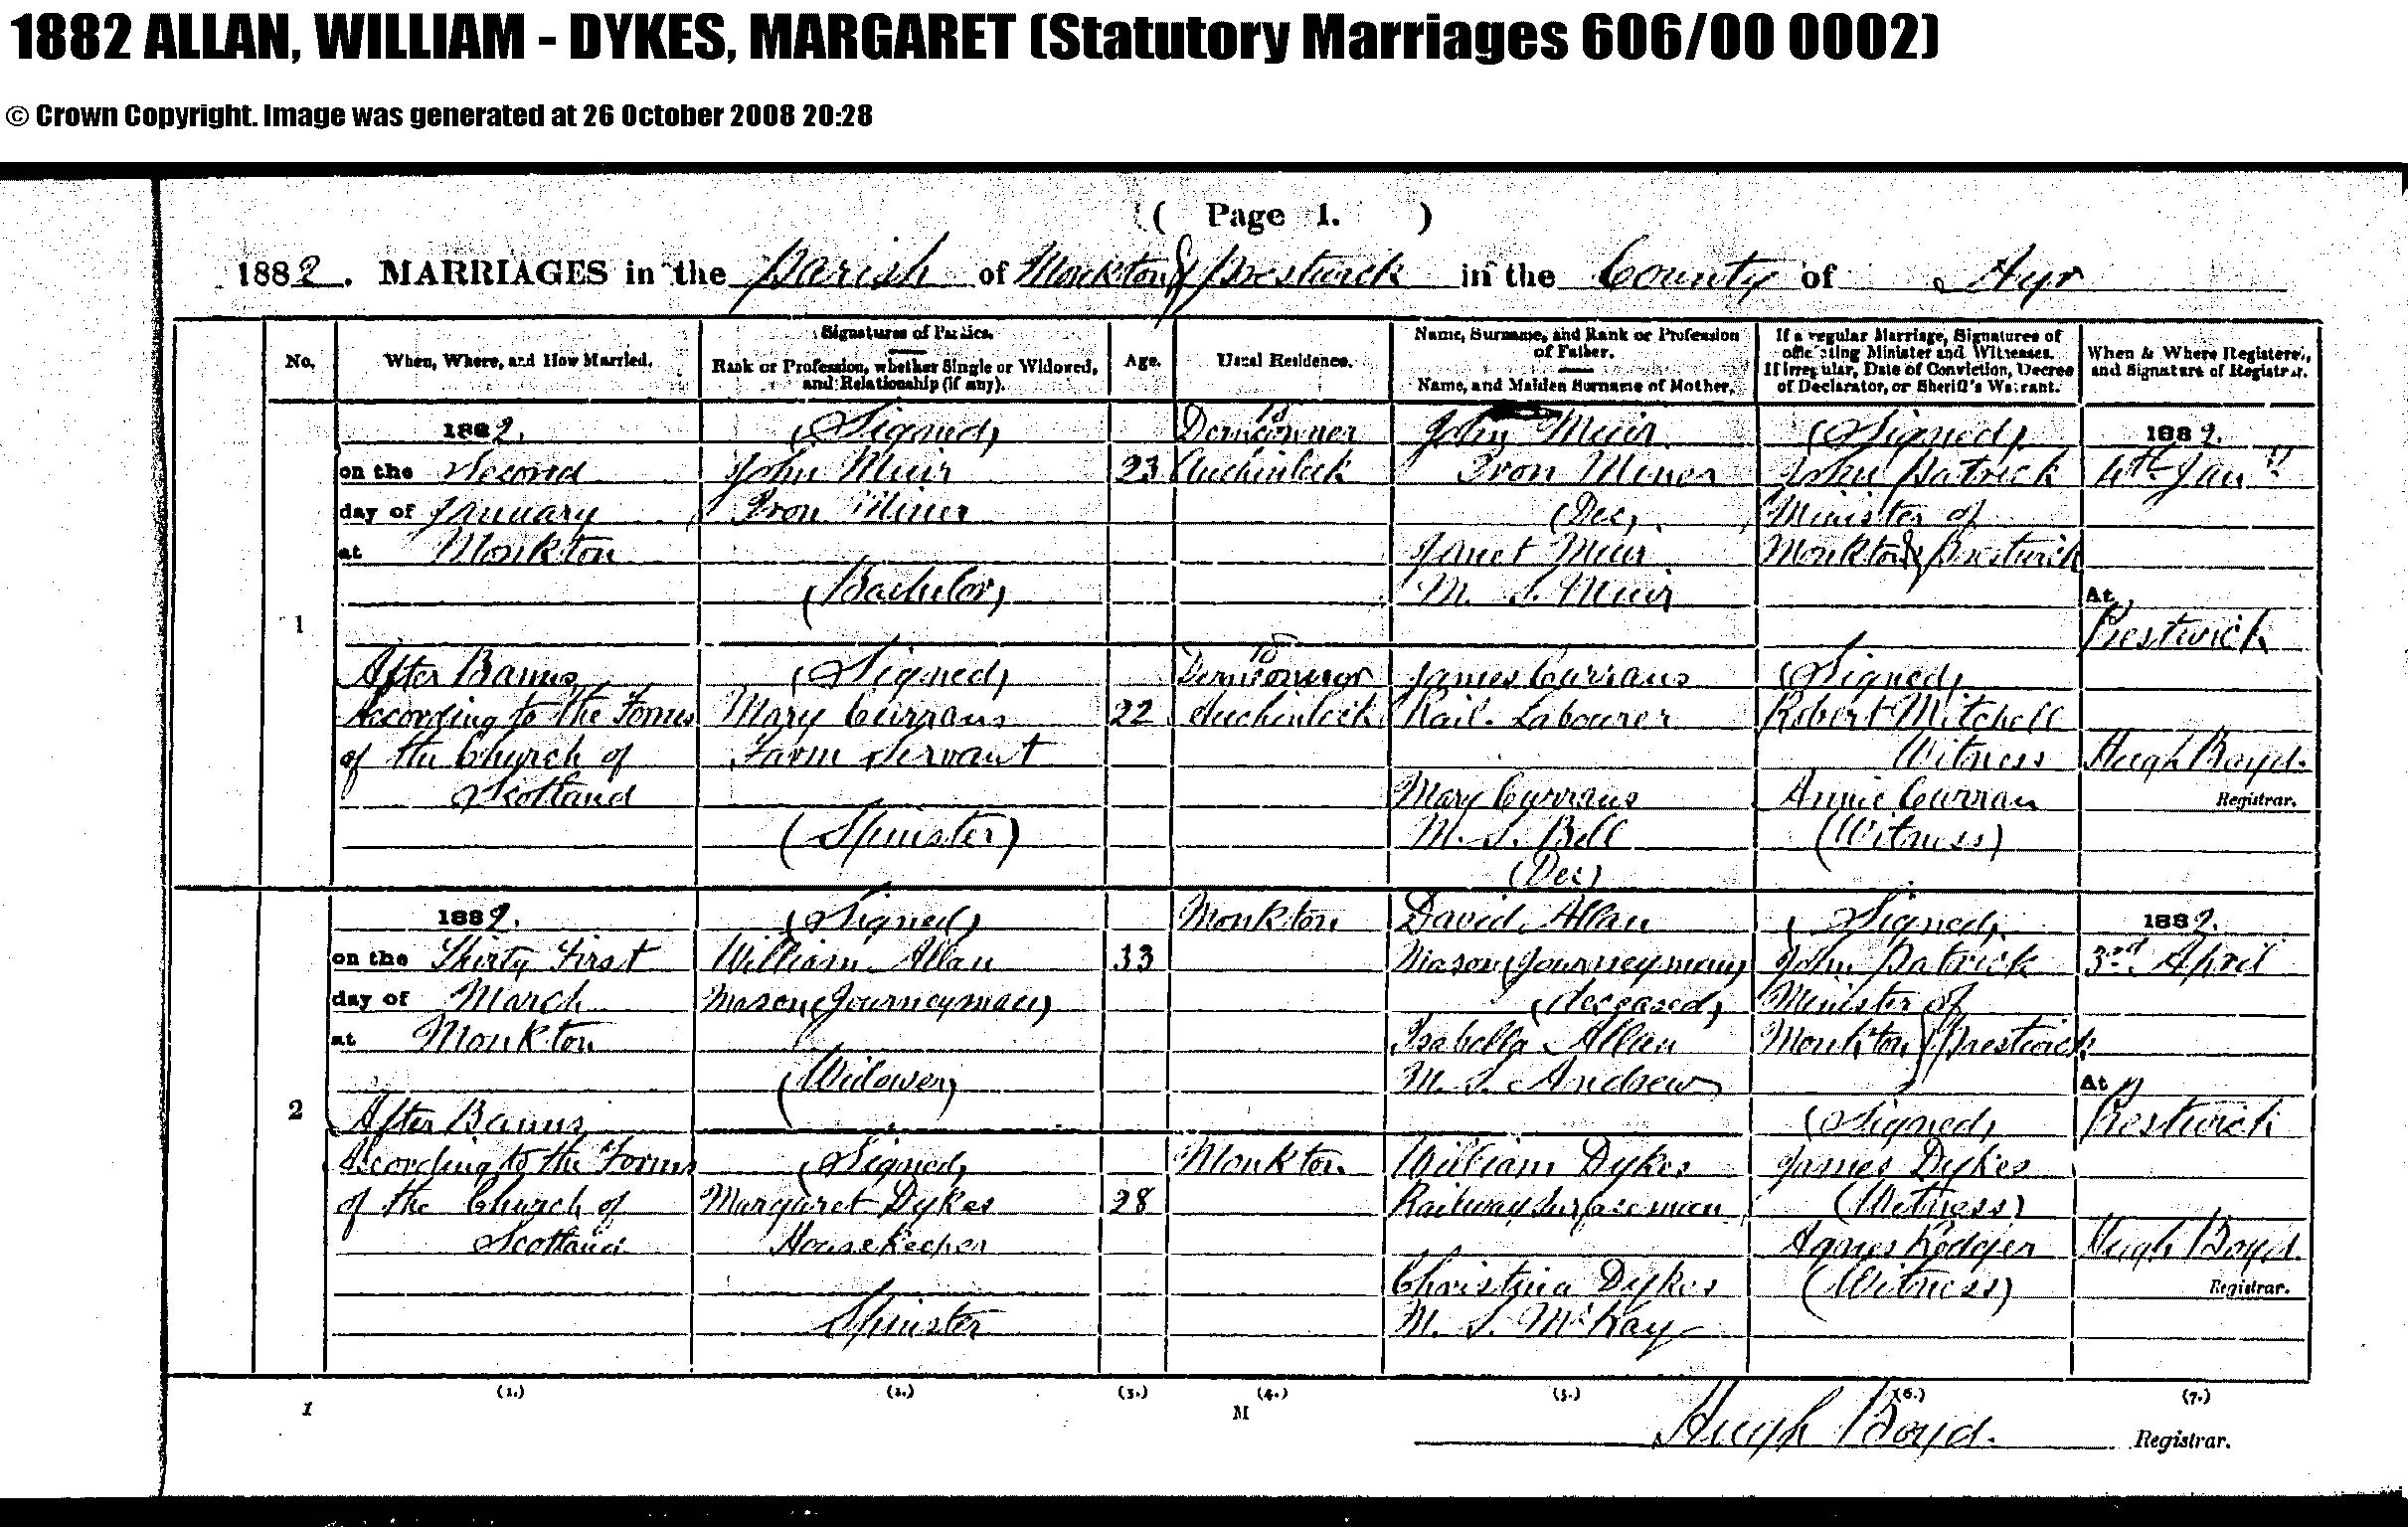 1882 ALLAN, WILLIAM - DYKES, MARGARET (Statutory Marriages 606/00 0002)
© Crown Copyright. Image was generated at 26 October 2008 20:28
( Page 1. )
1882. MARRIAGES in the Parish of Monkton & Prestwick in the County of Ayr
No.
When, Where, and How Married.
Signatures of Parties.
Rank or Profession, whether Single or Widowed,
and Relationship (if any).
Age.
Usual Residence.
Name, Surname, and Rank or Profession
of Father.
Name, and Maiden Surname of Mother.
If a regular Marriage, Signatures of
officiating Minister and Witnesses.
If irregular, Date of Conviction, Decree
of Declarator, or Sheriff's Warrant.
When & Where Registered,
and Signature of Registrar.
1
1882.
on the Second
day of January
at Monkton
After Banns
According to the Forms
of the Church of
Scotland
(Signed)
John Muir
Iron Miner
(Bachelor)
(Signed)
Mary Currans
Farm Servant
(Spinster)
23
22
Auchinleck
Auchinleck
John Muir
Iron Miner
(Dec)
Janet Muir
M. S. Muir
James Currans
Rail. Labourer
Mary Currans
M. S. Bell
(Dec)
(Signed)
John Patrick
Minister of
Monkton & Prestwick
(Signed)
Robert Mitchell
Witness
Annie Curran
(Witness)
1882.
4th Jany
At
Prestwick
Hugh Boyd.
Registrar.
2
1882.
on the Thirty First
day of March
at Monkton
After Banns
According to the Forms
of the Church of
Scotland
(Signed)
William Allan
Mason (Journeyman)
(Widower)
(Signed)
Margaret Dykes
Housekeeper
Spinster
33
28
Monkton
Monkton
David Allan
Mason (Journeyman)
(deceased)
Isabella Allan
M. S. Andrew
William Dykes
Railway Surfaceman
Christina Dykes
M. S. McKay
(Signed)
John Patrick
Minister of
Monkton & Prestwick
(Signed)
James Dykes
(Witness)
Agnes Rodger
(Witness)
1882.
3rd April
At
Prestwick
Hugh Boyd.
Registrar.
(1.) (2.) (3.) (4.) (5.) (6.) (7.)
1 M
Hugh Boyd. Registrar.